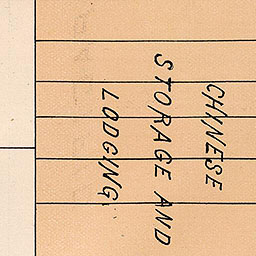 CHINESE
STORAGE AND
LODGING.